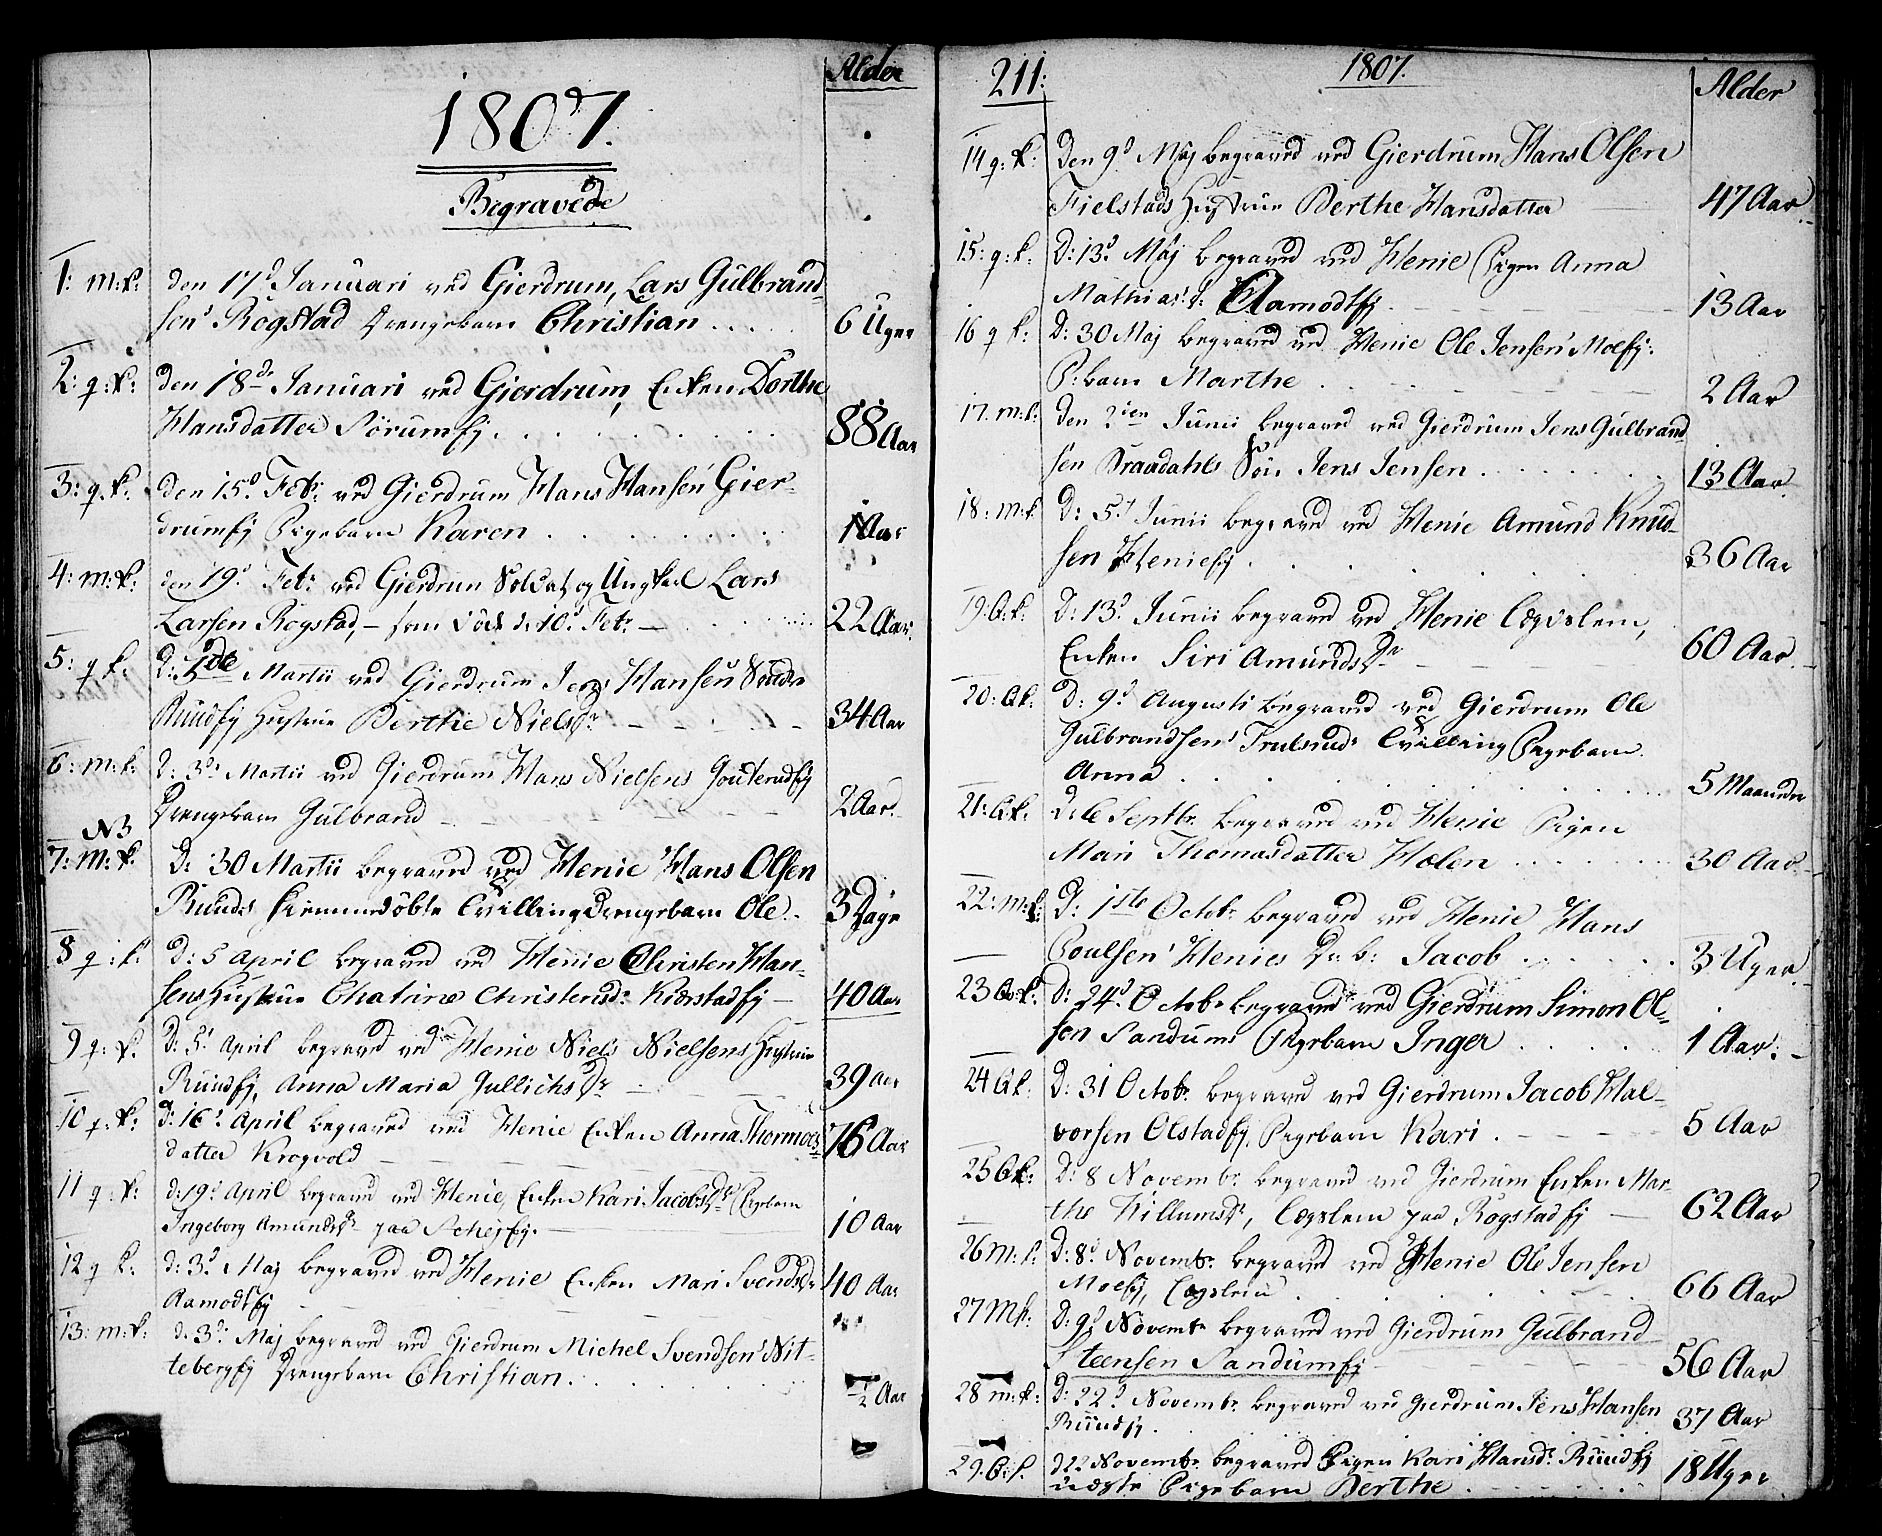 Alder
1807.
Begravede
1: m:k: den 17d Januari ved Gierdrum, Lars Gulbrand-
sens Rögstad Drengebarn Christian . . . . 6 Uger
2: q:k: den 18de Januari ved Gierdrum, Enken Dorthe
Hansdatter Sörumfj . . . . 88 Aar
3: q.k. den 15d Febr: ved Gierdrum Hans Hansen Gier-
drumfj Pigebarn Karen . . . . 1 Aar
4: m:k: den 19d Febr ved Gierdrum Soldat og Ungkarl Lars
Larsen Rogstad, - som döde d: 10d Febr - 22 Aar.
5: q k: d: 1de Martii ved Gierdrum Jens Hansen Söndre
Ruudfj Hustrue Berthe Nielsdr - 34 Aar
6: m:k: d: 3d Martii ved Gierdrum Hans Nielsens
Drengebarn Gulbrand - 2 Aar.
N3
7: m:k. D: 30 Martii begraved ved Henie Hans Olsen
Ruuds hiemmedöbte Tvilling Drengebarn Ole. 3 Dage
8 q:k: D: 5 April begraved ved Henie Christen Han-
sens Hustrue Chatrine Christensd: Kierstadfj - 40 Aar
9 q:k. D: 5d April begraved ved Henie Niels Nielsens Hustrue
Ruudfj, Anna Maria Gullichsdr - 39 Aar
10 q:k: d: 16d April begraved ved Henie Enken Anna Thormods
datter Krogvold - 76 Aar
11 q:k: d: 19d April begraved ved Henie, Enken Kari Jacobsdr Pigebarn
Ingeborg Amundsdr paa - 10 Aar
12 q k: d: 3d Maj begraved ved Henie Enken Mari Svendsdr
Aamodtfj - 40 Aar
13: m:k: d. 3d Maj begraved ved Gierdrum Michel Svendsens Nit-
tebergfj Drengebarn Christian. . . . 1/2 Aar
211:
1807.
Alder
14 q:k: Den 9d Maj begraved ved Gierdrum Hans Olsen
Fielstads Hustrue Berthe Hansdatter 47 Aar
15: q:k. D: 13d Maj begraved ved Henie Pigen Anna
Mathias: d: Aamodtfj. - 13 Aar
16 q k: D: 30 Maj begraved ved Henie Ole Jensens Moefj:
P: barn Marthe . . . 2 Aar
17. m.k: den 2den Junii begraved ved Gierdrum Jens Gulbrand
sen Brandahls Sön Jens Jensen . . . . 13 Aar
18: m:k D: 5d Junii begraved ved Henie Amund Knud-
sen Heniefj . . . . 36 Aar
19: Q:k: D: 13d Junii begraved ved Henie Lægdslem,
Enken Siri Amundsdr - 60 Aar
20: Qk: D: 9d Augusti begraved ved Gierdrum Ole
Gulbrandsens Trulsruds Tvilling Pigebarn
Anna . . . . 5 Maaneder
21: Qk: D: 6 Septbr: begraved ved Henie Pigen
Mari Thomasdatter Holen . . . . 30 Aar
22: m:k: D: 1ste Octobr begraved ved Henie Hans
Poulsens Henies Dr: b: Jacob . . . . 3 Uger
23 Q:k: D: 24d Octobr begraved ved Gierdrum Simon Ol-
sen Sandums Pigebarn Inger . . . . 1 Aar.
24 Qk: D: 31 Octobr begraved ved Gierdrum Jacob Hal-
vorsen Olstadfj Pigebarn Kari . - 5 Aar
25 Qk: D: 8 Novembr begraved ved Gierdrum Enken Mar-
the Willumsdr, Lægslem paa Rögstadfj - 62 Aar
26 M:k. D: 8d Novembr: begraved ved Henie Ole Jensen
Moefj, Lægslem . . . . 66 Aar
27 Mk: D: 9d Novembr begraved ved Gierdrum Gulbrand
Steensen Sandumfj - 56 Aar
28 m:k: D: 22d Novembr begraved ved Gierdrum Jens Hansen
Ruudfj . . . . 37 Aar
29. Q:k. d 22 Novembr begraved Pigen Kari Hansdr Ruudfj
uægte Pigebarn Berthe . . . . 18 Uger